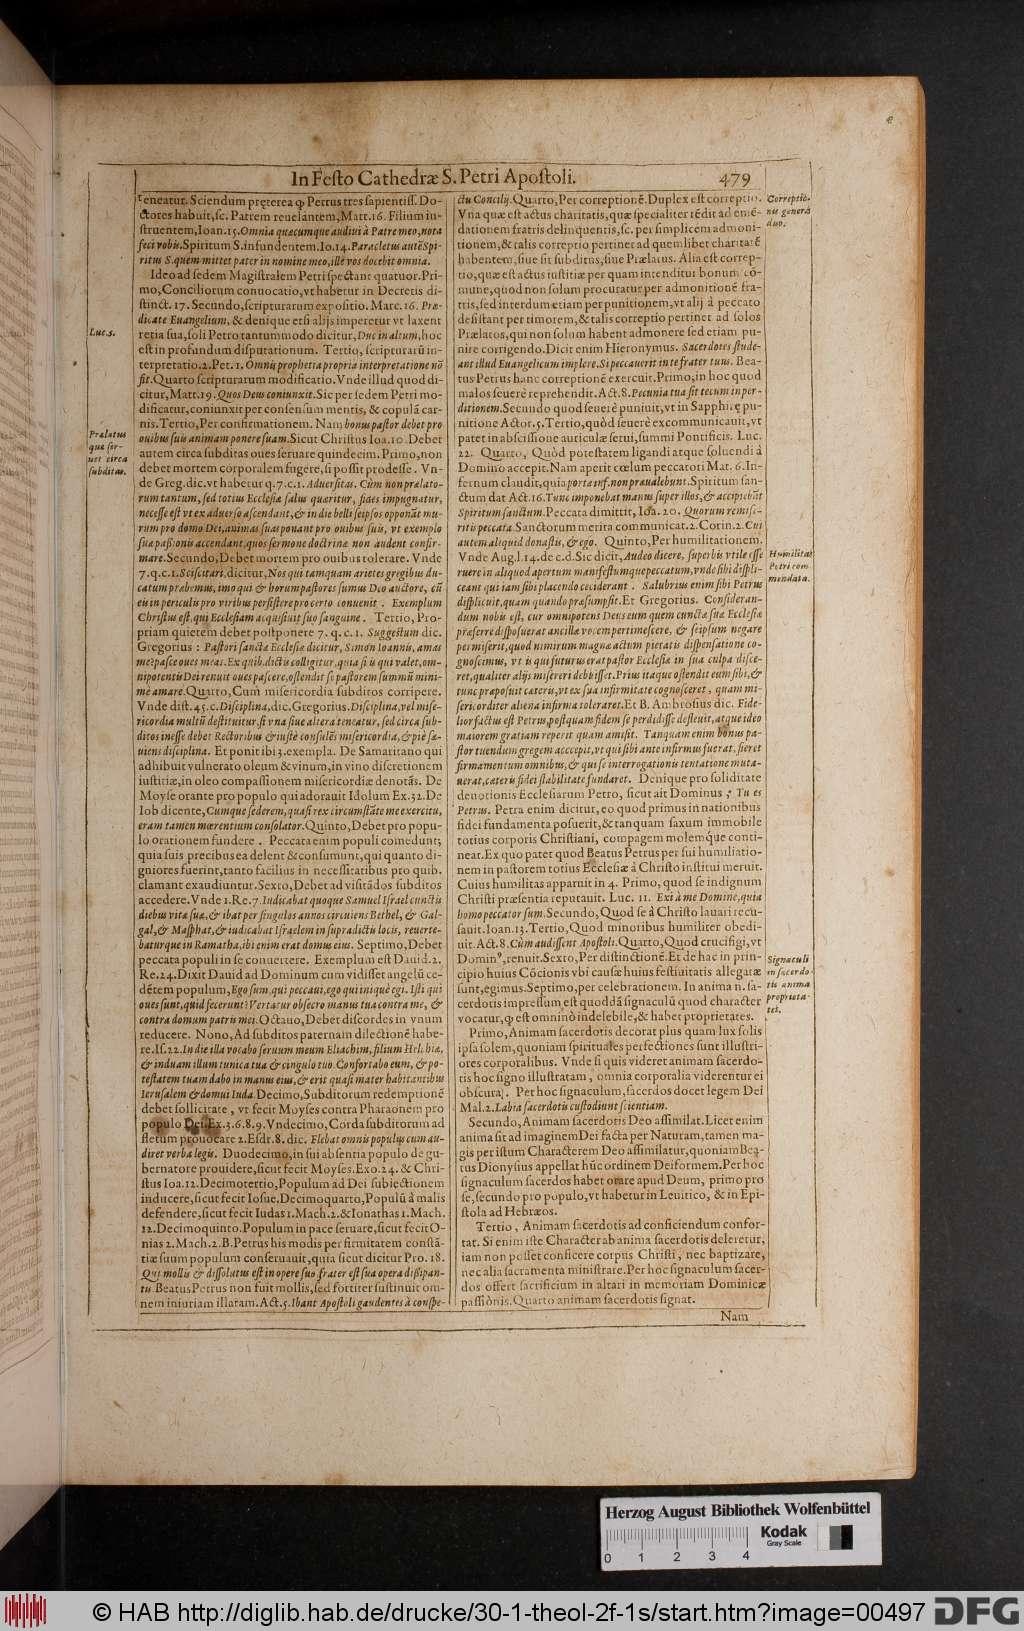 In Festo Cathedræ S. Petri Apostoli. 479
teneatur. Sciendum pręterea ꝙ Petrus tres sapientiss. Do-
ctores habuit, sc. Patrem reuelantem, Matt. 16. Filium in-
struentem, Ioan. 15. Omnia quæcumque audiui à Patre meo, nota
feci vobis. Spiritum S. infundentem. Io. 14. Paracletus autē Spi-
ritus S. quem mittet pater in nomine meo, ille vos docebit omnia.
Ideo ad sedem Magistralem Petri spectant quatuor. Pri-
mo, Conciliorum conuocatio, vt habetur in Decretis di-
stinct. 17. Secundo, scripturarum expositio. Marc. 16. Præ-
dicate Euangelium, & denique etsi alijs imperetur vt laxent
retia sua, soli Petro tantummodo dicitur, Duc in altum, hoc
est in profundum disputationum. Tertio, scripturarū in-
terpretatio. 2. Pet. 1. Omnis prophetia propria interpretatione nō
fit. Quarto scripturarum modificatio. Vnde illud quod di-
citur, Matt. 19. Quos Deus coniunxit. Sic per sedem Petri mo-
dificatur, coniunxit per consensum mentis, & copulā car-
nis. Tertio, Per confirmationem. Nam bonus pastor debet pro
ouibus suis animam ponere suam. Sicut Christus Ioa. 10. Debet
autem circa subditas oues seruare quindecim. Primo, non
debet mortem corporalem fugere, si possit prodesse. Vn-
de Greg. dic. vt habetur q. 7. c. 1. Aduersitas. Cùm non prælato-
rum tantum, sed totius Ecclesiæ salus quæritur, fides impugnatur,
necesse est vt ex aduerso ascendant, & in die belli seipsos opponāt mu-
rum pro domo Dei, animas suas ponant pro ouibus suis, vt exemplo
suæ passionis accendant, quos sermone doctrinæ non audent confir-
mare. Secundo, Debet mortem pro ouibus tolerare. Vnde
7. q. c. 1. Sciscitari, dicitur, Nos qui tamquam arietes gregibus du-
catum præbemus, imo qui & horum pastores sumus Deo auctore, cū
eis in periculis pro viribus persistere pro certo conuenit. Exemplum
Christus est, qui Ecclesiam acquisiuit suo sanguine. Tertio, Pro-
priam quietem debet postponere 7. q. c. 1. Suggestum dic.
Gregorius: Pastori sanctæ Ecclesiæ dicitur, Simon Ioannis, amas
me? pasce oues meas. Ex quib. dictis colligitur, quia si is qui valet, om-
nipotentis Dei renuit oues pascere, ostendit se pastorem summū mini-
mè amare. Quarto, Cum misericordia subditos corripere.
Vnde dist. 45. c. Disciplina, dic. Gregorius. Disciplina, vel mise-
ricordia multū destituitur, si vna siue altera teneatur, sed circa sub-
ditos inesse debet Rectoribus & iustè consulēs misericordia, & piè sæ-
uiens disciplina. Et ponit ibi 3. exempla. De Samaritano qui
adhibuit vulnerato oleum & vinum, in vino discretionem
iustitiæ, in oleo compassionem misericordiæ denotās. De
Moyse orante pro populo qui adorauit Idolum Ex. 32. De
Iob dicente, Cumque sederem, quasi rex circumstāte me exercitu,
eram tamen mœrentium consolator. Quinto, Debet pro popu-
lo orationem fundere. Peccata enim populi comedunt,
quia suis precibus ea delent & consumunt, qui quanto di-
gniores fuerint, tanto facilius in necessitatibus pro quib.
clamant exaudiuntur. Sexto, Debet ad visitādos subditos
accedere. Vnde 1. Re. 7. Iudicabat quoque Samuel Israel cunctis
diebus vitæ suæ, & ibat per singulos annos circuiens Bethel, & Gal-
gal, & Masphat, & iudicabat Israelem in supradictis locis, reuerte-
baturque in Ramatha, ibi enim erat domus eius. Septimo, Debet
peccata populi in se conuertere. Exemplum est Dauid. 2.
Re. 24. Dixit Dauid ad Dominum cum vidisset angelū cę-
dētem populum, Ego sum, qui peccaui, ego qui iniquè egi. Isti qui
oues sunt, quid fecerunt? Vertatur obsecro manus tua contra me, &
contra domum patris mei. Octauo, Debet discordes in vnum
reducere. Nono, Ad subditos paternam dilectionē habe-
re. Is. 22. In die illa vocabo seruum meum Eliachim, filium Helchiæ,
& induam illum tunica tua & cingulo tuo. Confortabo eum, & po-
testatem tuam dabo in manus eius, & erit quasi mater habitantibus
Ierusalem & domui Iuda. Decimo, Subditorum redemptionē
debet sollicitare, vt fecit Moyses contra Pharaonem pro
populo Dei. Ex. 3. 6. 8. 9. Vndecimo, Corda subditorum ad
fletum prouocare 2. Esdr. 8. dic. Flebat omnis populus cum au-
diret verba legis. Duodecimo, in sui absentia populo de gu-
bernatore prouidere, sicut fecit Moyses. Exo. 24. & Chri-
stus Ioa. 12. Decimotertio, Populum ad Dei subiectionem
inducere, sicut fecit Iosue. Decimoquarto, Populū à malis
defendere, sicut fecit Iudas 1. Mach. 2. & Ionathas 1. Mach.
12. Decimoquinto. Populum in pace seruare, sicut fecit O-
nias 2. Mach. 2. B. Petrus his modis per firmitatem constā-
tiæ suum populum conseruauit, quia sicut dicitur Pro. 18.
Qui mollis & dissolutus est in opere suo frater est sua opera dissipan-
tis. Beatus Petrus non fuit mollis, sed fortiter sustinuit om-
nem iniuriam illatam. Act. 5. Ibant Apostoli gaudentes à conspe-
Luc. 5.
Prælatus
quæ ser-
uet circa
subditas.
ctu Concilij. Quarto, Per correptionē. Duplex est correptio.
Vna quæ est actus charitatis, quæ specialiter tēdit ad emē-
dationem fratris delinquentis, sc. per simplicem admoni-
tionem, & talis correptio pertinet ad quemlibet charitatē
habentem, siue sit subditus, siue Prælatus. Alia est correp-
tio, quæ est actus iustitiæ per quam intenditur bonum cō-
mune, quod non solum procuratur per admonitionē fra-
tris, sed interdum etiam per punitionem, vt alij à peccato
desistant per timorem, & talis correptio pertinet ad solos
Prælatos, qui non solum habent admonere sed etiam pu-
nire corrigendo. Dicit enim Hieronymus. Sacerdotes stude-
ant illud Euangelicum implere. Si peccauerit in te frater tuus. Bea-
tus Petrus hanc correptionē exercuit. Primo, in hoc quod
malos seuerè reprehendit. Act. 8. Pecunia tua sit tecum in per-
ditionem. Secundo quod seuerè puniuit, vt in Sapphirę pu-
nitione Actor. 5. Tertio, quòd seuerè excommunicauit, vt
patet in abscissione auriculæ serui, summi Pontificis. Luc.
22. Quarto, Quòd potestatem ligandi atque soluendi à
Domino accepit. Nam aperit cœlum peccatori Mat. 6. In-
fernum claudit, quia portæ inf. non præualebunt. Spiritum san-
ctum dat Act. 16. Tunc imponebat manus super illos, & accipiebāt
Spiritum sanctum. Peccata dimittit, Ioa. 20. Quorum remise-
ritis peccata. Sanctorum merita communicat. 2. Corin. 2. Cui
autem aliquid donastis, & ego. Quinto, Per humilitationem.
Vnde Aug. l. 14. de c. d. Sic dicit, Audeo dicere, superbis vtile esse
ruere in aliquod apertum manifestumque peccatum, vnde sibi displi-
ceant qui iam sibi placendo ceciderant. Salubrius enim sibi Petrus
displicuit, quam quando præsumpsit. Et Gregorius. Consideran-
dum nobis est, cur omnipotens Deus eum quem cunctæ suæ Ecclesiæ
præferre disposuerat ancillæ vocem pertimescere, & seipsum negare
permiserit, quod nimirum magnæ actum pietatis dispensatione co-
gnoscimus, vt is qui futurus erat pastor Ecclesiæ in sua culpa disce-
ret, qualiter alijs misereri debuisset. Prius itaque ostendit eum sibi, &
tunc præposuit cæteris, vt ex sua infirmitate cognosceret, quam mi-
sericorditer aliena infirma toleraret. Et B. Ambrosius dic. Fide-
lior factus est Petrus, postquam fidem se perdidisse defleuit, atque ideo
maiorem gratiam reperit quam amisit. Tanquam enim bonus pa-
stor tuendum gregem accepit, vt qui sibi ante infirmus fuerat, fieret
firmamentum omnibus, & qui se interrogationis tentatione muta-
uerat, cæteris fidei stabilitate fundaret. Denique pro soliditate
deuotionis Ecclesiarum Petro, sicut ait Dominus; Tu es
Petrus. Petra enim dicitur, eo quod primus in nationibus
fidei fundamenta posuerit, & tanquam saxum immobile
totius corporis Christiani, compagem molemq́ue conti-
neat. Ex quo patet quod Beatus Petrus per sui humiliatio-
nem in pastorem totius Ecclesiæ à Christo institui meruit.
Cuius humilitas apparuit in 4. Primo, quod se indignum
Christi præsentia reputauit. Luc. 11. Exi à me Domine, quia
homo peccator sum. Secundo, Quod se à Christo lauari recu-
sauit. Ioan. 13. Tertio, Quod minoribus humiliter obedi-
uit. Act. 8. Cùm audissent Apostoli. Quarto, Quod crucifigi, vt
Dominꝰ, renuit. Sexto, Per distinctionē. Et de hac in prin-
cipio huius Cōcionis vbi causæ huius festiuitatis allegatæ
sunt, egimus. Septimo, per celebrationem. In anima n. sa-
cerdotis impressum est quoddā signaculū quod character
vocatur, ꝙ est omninò indelebile, & habet proprietates.
Primo, Animam sacerdotis decorat plus quam lux solis
ipsa solem, quoniam spirituales perfectiones sunt illustri-
ores corporalibus. Vnde si quis videret animam sacerdo-
tis hoc signo illustratam, omnia corporalia viderentur ei
obscura. Per hoc signaculum, sacerdos docet legem Dei
Mal. 2. Labia sacerdotis custodiunt scientiam.
Secundo, Animam sacerdotis Deo assimilat. Licet enim
anima sit ad imaginem Dei facta per Naturam, tamen ma-
gis per istum Characterem Deo assimilatur, quoniam Bea-
tus Dionysius appellat hūc ordinem Deiformem. Per hoc
signaculum sacerdos habet orare apud Deum, primo pro
se, secundo pro populo, vt habetur in Leuitico, & in Epi-
stola ad Hebræos.
Tertio, Animam sacerdotis ad conficiendum confor-
tat. Si enim iste Character ab anima sacerdotis deleretur,
iam non posset conficere corpus Christi, nec baptizare,
nec alia sacramenta ministrare. Per hoc signaculum sacer-
dos offert sacrificium in altari in memoriam Dominicæ
passiònis. Quarto animam sacerdotis signat.
Nam
Correptio-
nis genera
duo.
Humilitas
Petri com-
mendata.
Signaculi
in sacerdo-
tis anima
proprieta-
tes.
Herzog August Bibliothek Wolfenbüttel
0 1 2 3 4
Kodak
Gray Scale
© HAB http://diglib.hab.de/drucke/30-1-theol-2f-1s/start.htm?image=00497
DFG